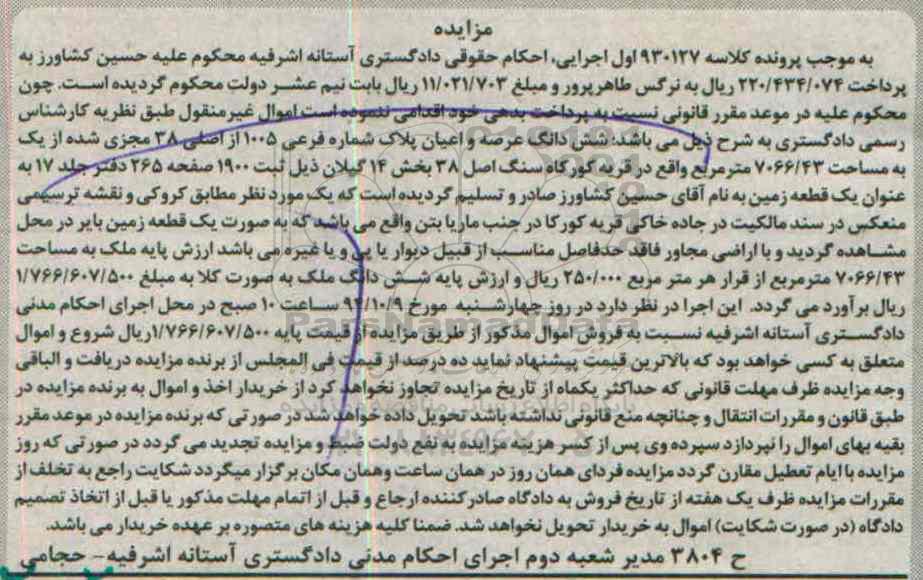 مزایده
به موجب پرونده کلاسه ۹۳۰۱۲۷ اول اجرایی، احکام حقوقی دادگستری آستانه اشرفیه محکوم علیه حسین کشاورز به
پرداخت ۲۲۰/۴۳۴/۰۷۴ ریال به نرگس طاهرپرور و مبلغ ۱۱/۰۲۱/۷۰۳ ریال بابت نیم عشر دولت محکوم گردیده است. چون
محکوم علیه در موعد مقرر قانونی نسبت به پرداخت بدهی خود اقدامی ننموده است اموال غیرمنقول طبق نظریه کارشناس
رسمی دادگستری به شرح ذیل می باشد: شش دانگ عرصه و اعیان پلاک شماره فرعی ۱۰۰۵ از اصلی ۳۸ مجزی شده از یک
به مساحت ۷۰۶۶/۴۳ مترمربع واقع در قریه کورکاه سنگ اصل ۳۸ بخش ۱۴ گیلان ذیل ثبت ۱۹۰۰ صفحه ۲۶۵ دفتر جلد ۱۷ به
عنوان یک قطعه زمین به نام آقای حسین کشاورز صادر و تسلیم گردیده است که یک مورد نظر مطابق کروکی و نقشه ترسیمی
منعکس در سند مالکیت در جاده خاکی قریه کورکا در جنب ماریا بتن واقع می باشد که به صورت یک قطعه زمین بایر در محل
مشاهده گردید و با اراضی مجاور فاقد حدفاصل مناسب از قبیل دیوار یا پی و یا غیره می باشد ارزش پایه ملک به مساحت
۷۰۶۶/۴۳ مترمربع از قرار هر متر مربع ۲۵۰/۰۰۰ ریال و ارزش پایه شش دانگ ملک به صورت کلا به مبلغ ۱/۷۶۶/۶۰۷/۵۰۰
ریال برآورد می گردد. این اجرا در نظر دارد در روز چهارشنبه مورخ ۹۴/۱۰/۹ ساعت ۱۰ صبح در محل اجرای احکام مدنی
دادگستری آستانه اشرفیه نسبت به فروش اموال مذکور از طریق مزایده از قیمت پایه ۱/۷۶۶/۶۰۷/۵۰۰ریال شروع و اموال
متعلق به کسی خواهد بود که بالاترین قیمت پیشنهاد نماید ده درصد از قیمت فی المجلس از برنده مزایده دریافت و الباقی
وجه مزایده ظرف مهلت قانونی که حداکثر یکماه از تاریخ مزایده تجاوز نخواهد کرد از خریدار اخذ و اموال به برنده مزایده در
طبق قانون و مقررات انتقال و چنانچه منع قانونی نداشته باشد تحویل داده خواهد شد در صورتی که برنده مزایده در موعد مقرر
بقیه بهای اموال را نپردازد سپرده وی پس از کسر هزینه مزایده به نفع دولت ضبط و مزایده تجدید می گردد در صورتی که روز
مزایده با ایام تعطیل مقارن گردد مزایده فردای همان روز در همان ساعت وهمان مکان برگزار میگردد شکایت راجع به تخلف از
مقررات مزایده ظرف یک هفته از تاریخ فروش به دادگاه صادرکننده ارجاع و قبل از اتمام مهلت مذکور یا قبل از اتخاذ تصمیم
دادگاه (در صورت شکایت) اموال به خریدار تحویل نخواهد شد. ضمنا کلیه هزینه های متصوره بر عهده خریدار می باشد.
ح ۳۸۰۴ مدیر شعبه دوم اجرای احکام مدنی دادگستری آستانه اشرفیه- حجامی